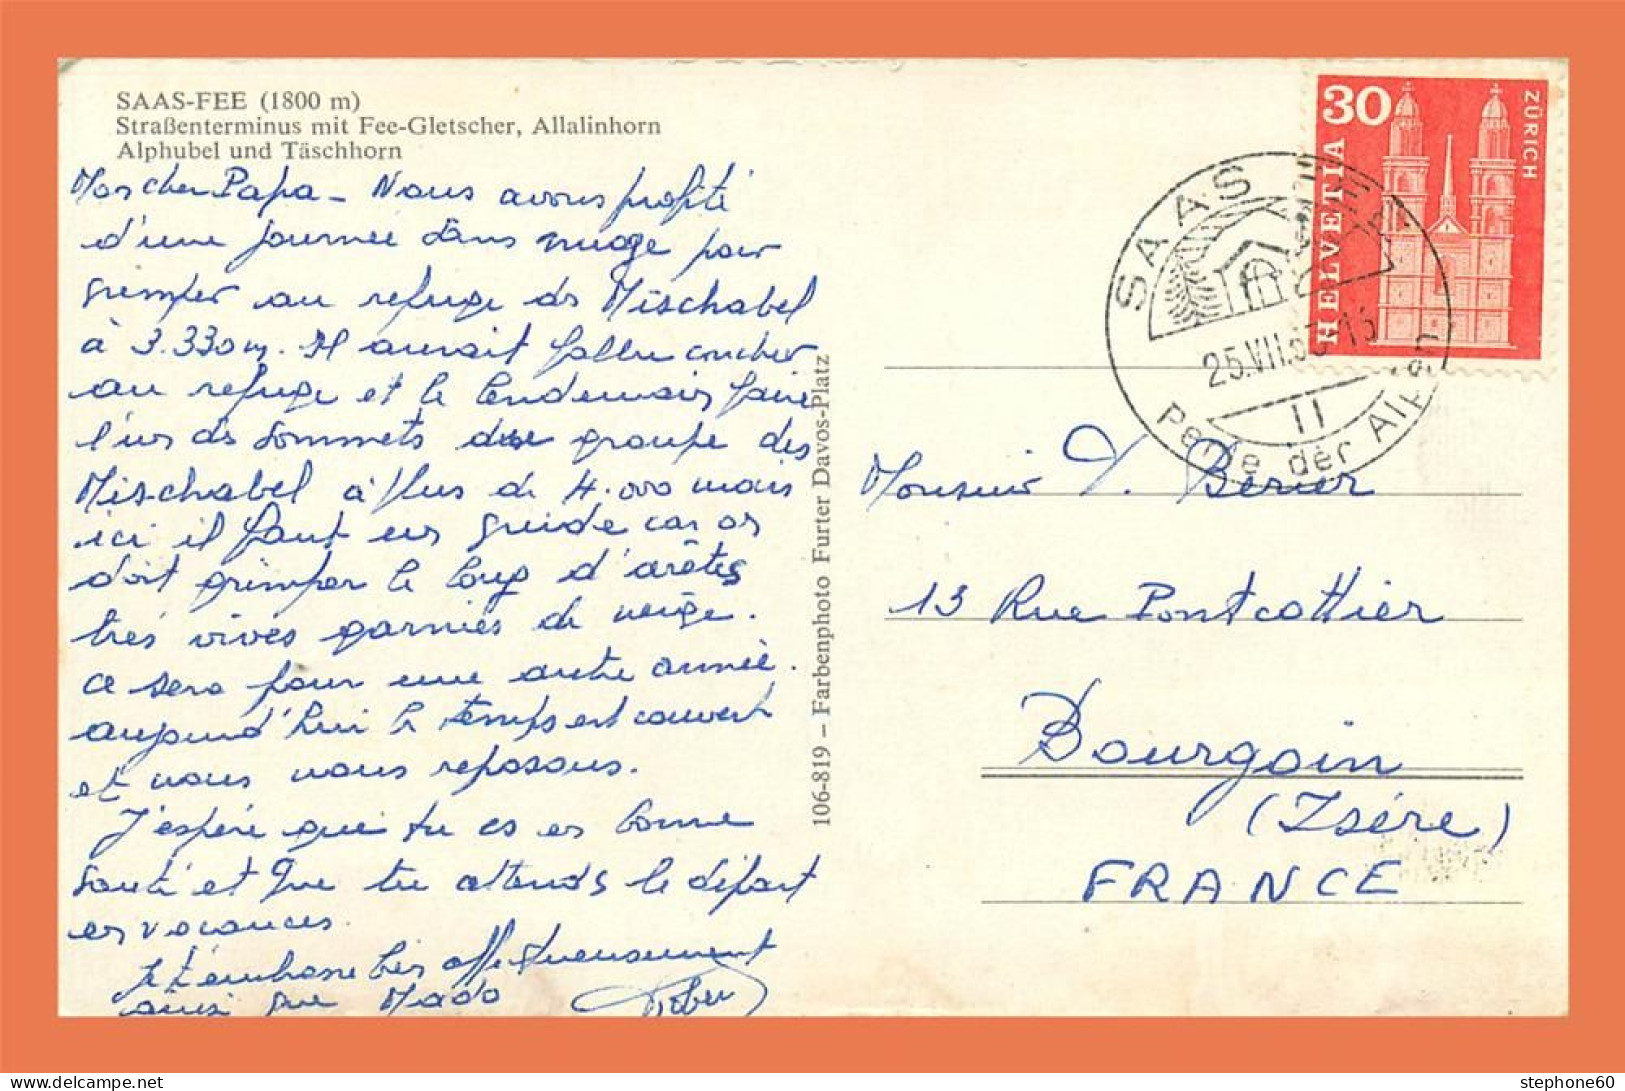 SAAS-FEE (1800 m)
Straßenterminus mit Fee-Gletscher, Allalinhorn
Alphubel und Täschhorn
Mon cher Papa - Nous avons profité
d'une journée sans nuage pour
grimper au refuge des Mischabel
à 3.330m. Il aurait fallu coucher
au refuge et le lendemain faire
l'un des sommets du groupe des
Mischabel à plus de 4.000 mais
ici il faut un guide car on
doit grimper le long d'arêtes
très vives garnies de neige.
Ce sera pour une autre année.
aujourd'hui le temps est couvert
et nous nous reposons.
J'espère que tu es en bonne
santé et que tu attends le départ
en vacances.
Je t'embrasse bien affectueusement
ainsi que Mado
106-819 – Farbenphoto Furter Davos-Platz
HELVETIA
30
ZÜRICH
SAAS-FEE
25.VII.
11
Perle der Alpen
Monsieur Bérier
13 Rue Pontcottier
Bourgoin
(Isére)
FRANCE
stephone60